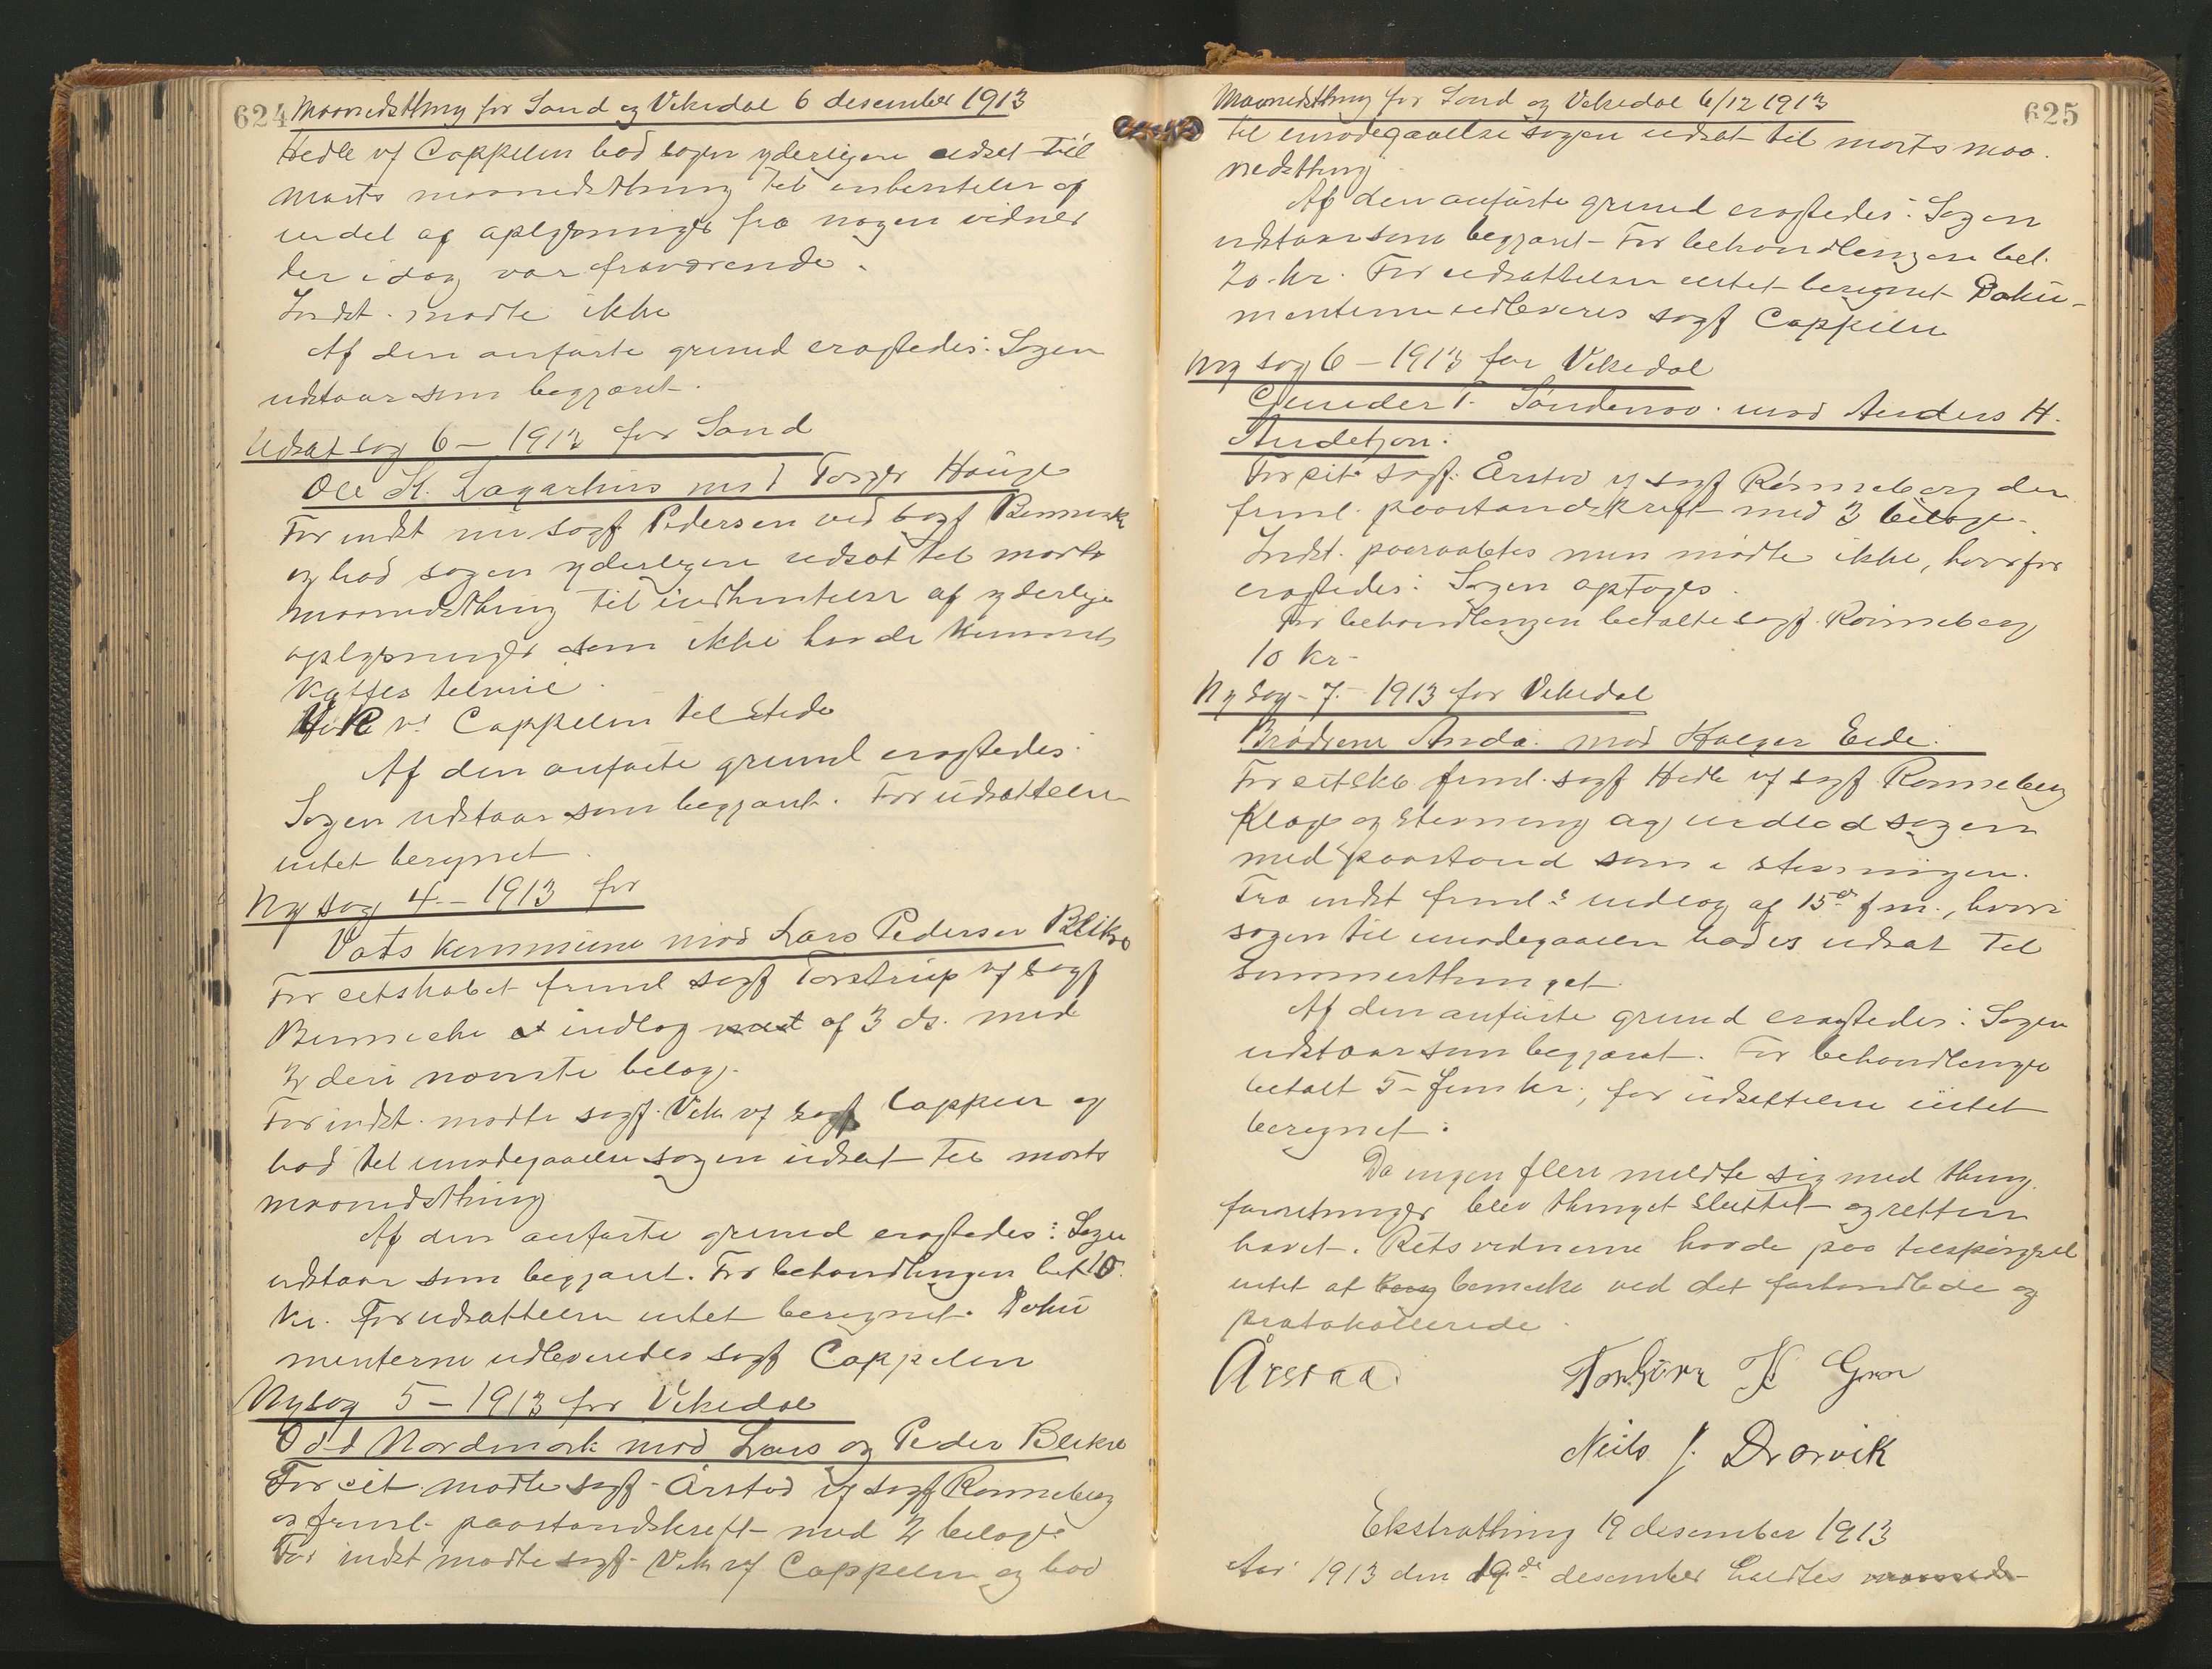 624 Maanedsthing for Sand og Vikedal 6 desember 1913
Hedle vf Cappelen bad sagen yderligere udsat til
marts maanedsthing til indhentelse af
en del af oplysninger fra nogen vidner
der i dag var fraværende.
Indst. mødte ikke
Af den anførte grund eragtedes: Sagen
udstaar som begjæret.
Udsat sag 6 – 1913 for Sand
Ole K. Lagarhus mod Torger Hauge
For indst mø sagf. Pedersen ved sagf Bennecke
og bad sagen yderligere udsat til marts
maanedsthing til indhentelse af yderlige
oplysninger som ikke havde kunnet
kaffes tilveie.
Hedle vf Cappelen tilstede
Af den anførte grund eragtedes:
Sagen udstaar som begjæret. For udsættelsen
intet beregnet.
Ny sag 4 – 1913 for
Vats kommune mod Lars Pedersen Blikra
For citskabet freml sagf Torstrup vf sagf
Bennecke et indlæg af 3 ds. med
2 deri nævnte bilag.
For indst. mødte sagf. Vik vf sagf Cappelen og
bad til imødegaaelse sagen udsat til marts
maanedsthing
Af den anførte grund eragtedes: Sagen
udstaar som begjæret. For behandlingen bet 10
kr. For udsættelsen intet beregnet. Doku
menterne udleveredes sagf Cappelen
Ny sag 5 – 1913 for Vikedal
Odd Nordmark mod Lars og Peder Blikra
For cit mødte sagf. Årstad vf sagf Rønneberg
og freml. paastandskrift med 2 bilage
For indst mødte sagf. Vik vf Cappelen og bad
Maanedsthing for Sand og Vikedal 6/12 1913 625
til imødegaaelse sagen udsat til marts maa
nedsthing
Af den anførte grund eragtedes: Sagen
udstaar som begjæret – For behandlingen bet.
20 kr. For udsættelsen intet beregnet Doku-
menterne udleveres sagf Cappelen
Ny sag 6 – 1913 for Vikedal
T. Søndenaa mod Anders H.
For cit sagf: Årstad vf sagf Rønneberg der
freml. paastandskrift med 3 bilage.
Indst. paaraabtes men mødte ikke, hvorfor
eragtedes: Sagen optages.
For behandlingen betalte sagf. Rønneberg
10 kr –
Ny sag – 7 – 1913 for Vikedal
Brødrene Anda mod Holger Eide.
For citskb freml. sagf Hedle vf sagf Rønneberg
Klage og stevning og indlod sagen
med paastand som i stevningen.
Fra indst freml.s indlæg af 15de f.m., hvori
sagen til imødegaaelse bades udsat til
sommerthinget.
Af den anførte grund eragtedes: Sagen
udstaar som begjæret. For behandlingen
betalt 5 – fem kr., for udsættelsen intet
beregnet.
Da ingen flere meldte sig med thing
forretninger blev thinget sluttet og retten
hævet. Retsvidnerne havde paa tilspørgsel
intet at bemerke ved det forhandlede og
protokollerede.
Årstad. Torbjørn K
Neils J. Drarvik
Ekstrathing 19 desember 1913
Aar 1913 den 19de desember holdtes maaneds-